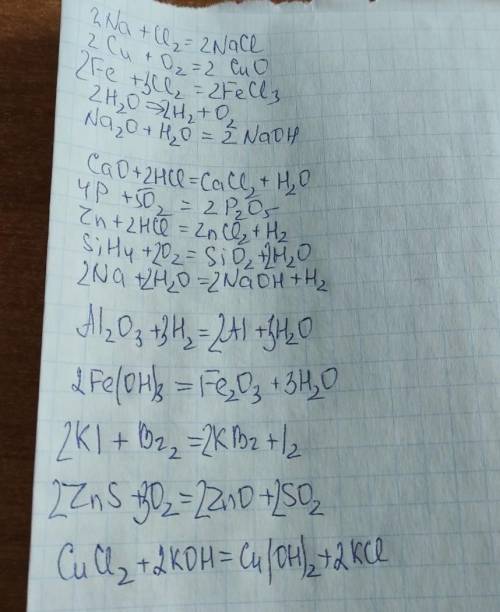 2Na + Cl₂ = 2NaCl
2Cu + O₂ = 2 CuO
2Fe + 3Cl₂ = 2FeCl₃
2H₂O ⇒ 2H₂ + O₂
Na₂O + H₂O = 2 NaOH
CaO + 2HCl = CaCl₂ + H₂O
4P + 5O₂ = 2 P₂O₅
Zn + 2HCl = ZnCl₂ + H₂
SiH₄ + 2O₂ = SiO₂ + 2H₂O
2Na + 2H₂O = 2NaOH + H₂
Al₂O₃ + 3H₂ = 2Al + 3H₂O
2Fe(OH)₃ = Fe₂O₃ + 3H₂O
2KI + Br₂ = 2KBr + I₂
2ZnS + 3O₂ = 2ZnO + 2SO₂
CuCl₂ + 2KOH = Cu(OH)₂ + 2KCl